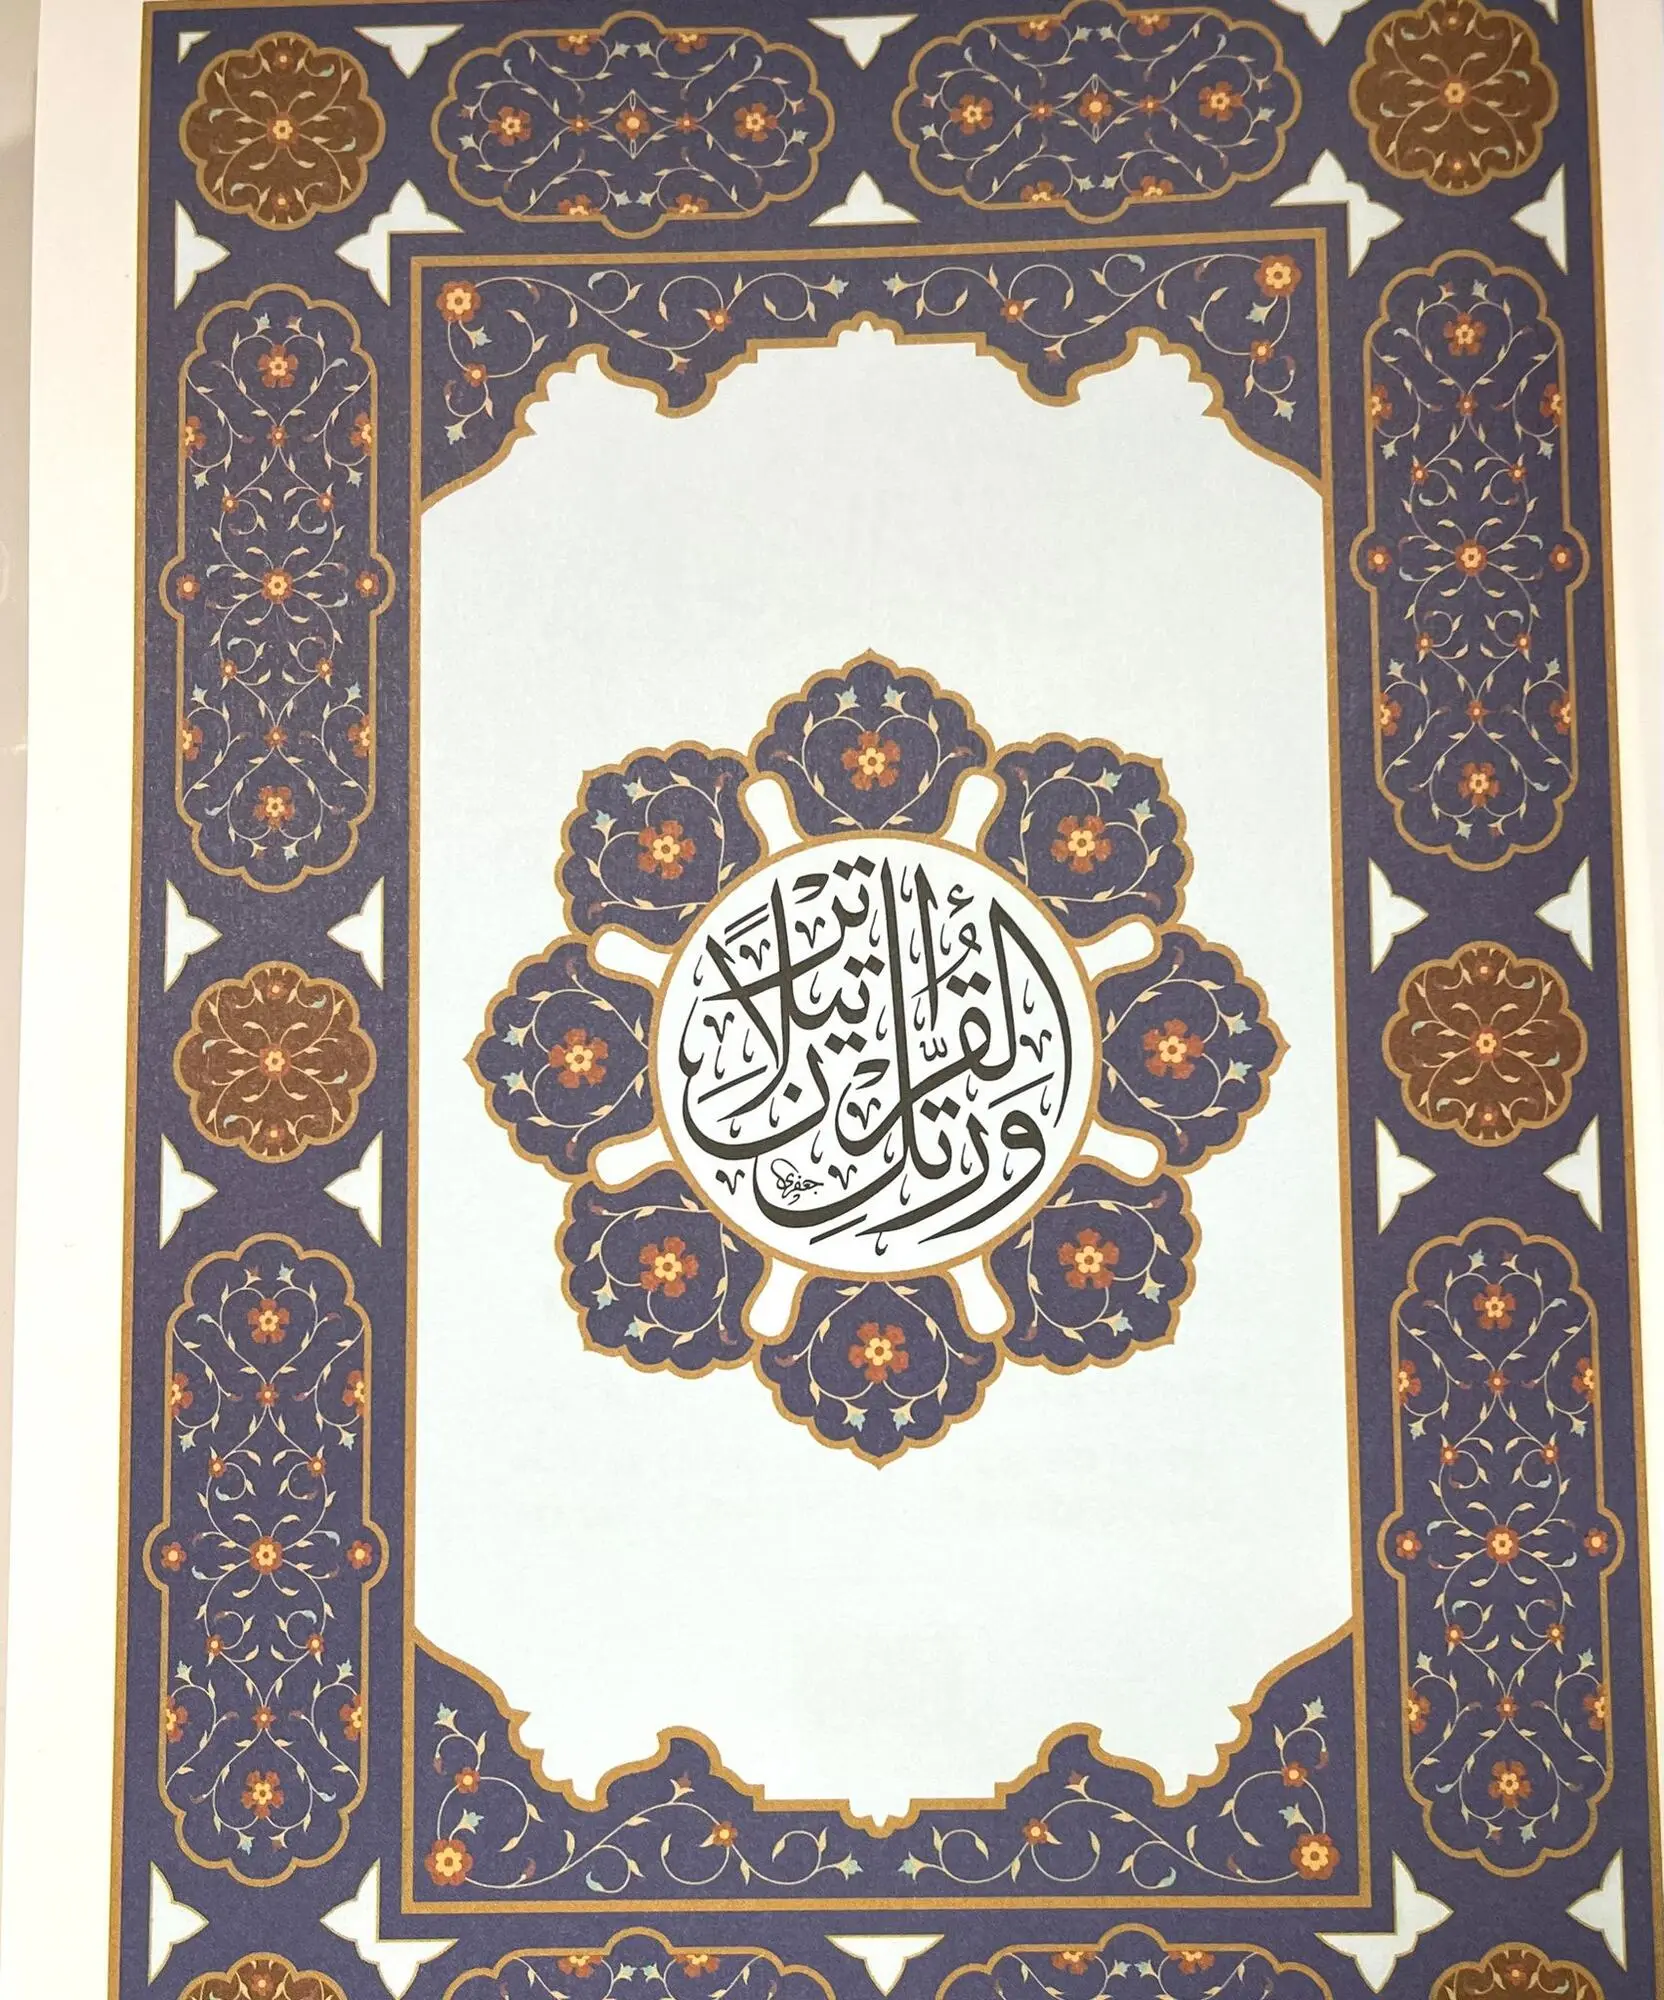 وَرَتِّلِ الْقُرْءَانَ تَرْتِيلًا
جعفری